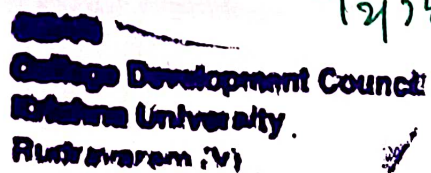 12/
College Development Council
Krishna University
Rudravaram (V)